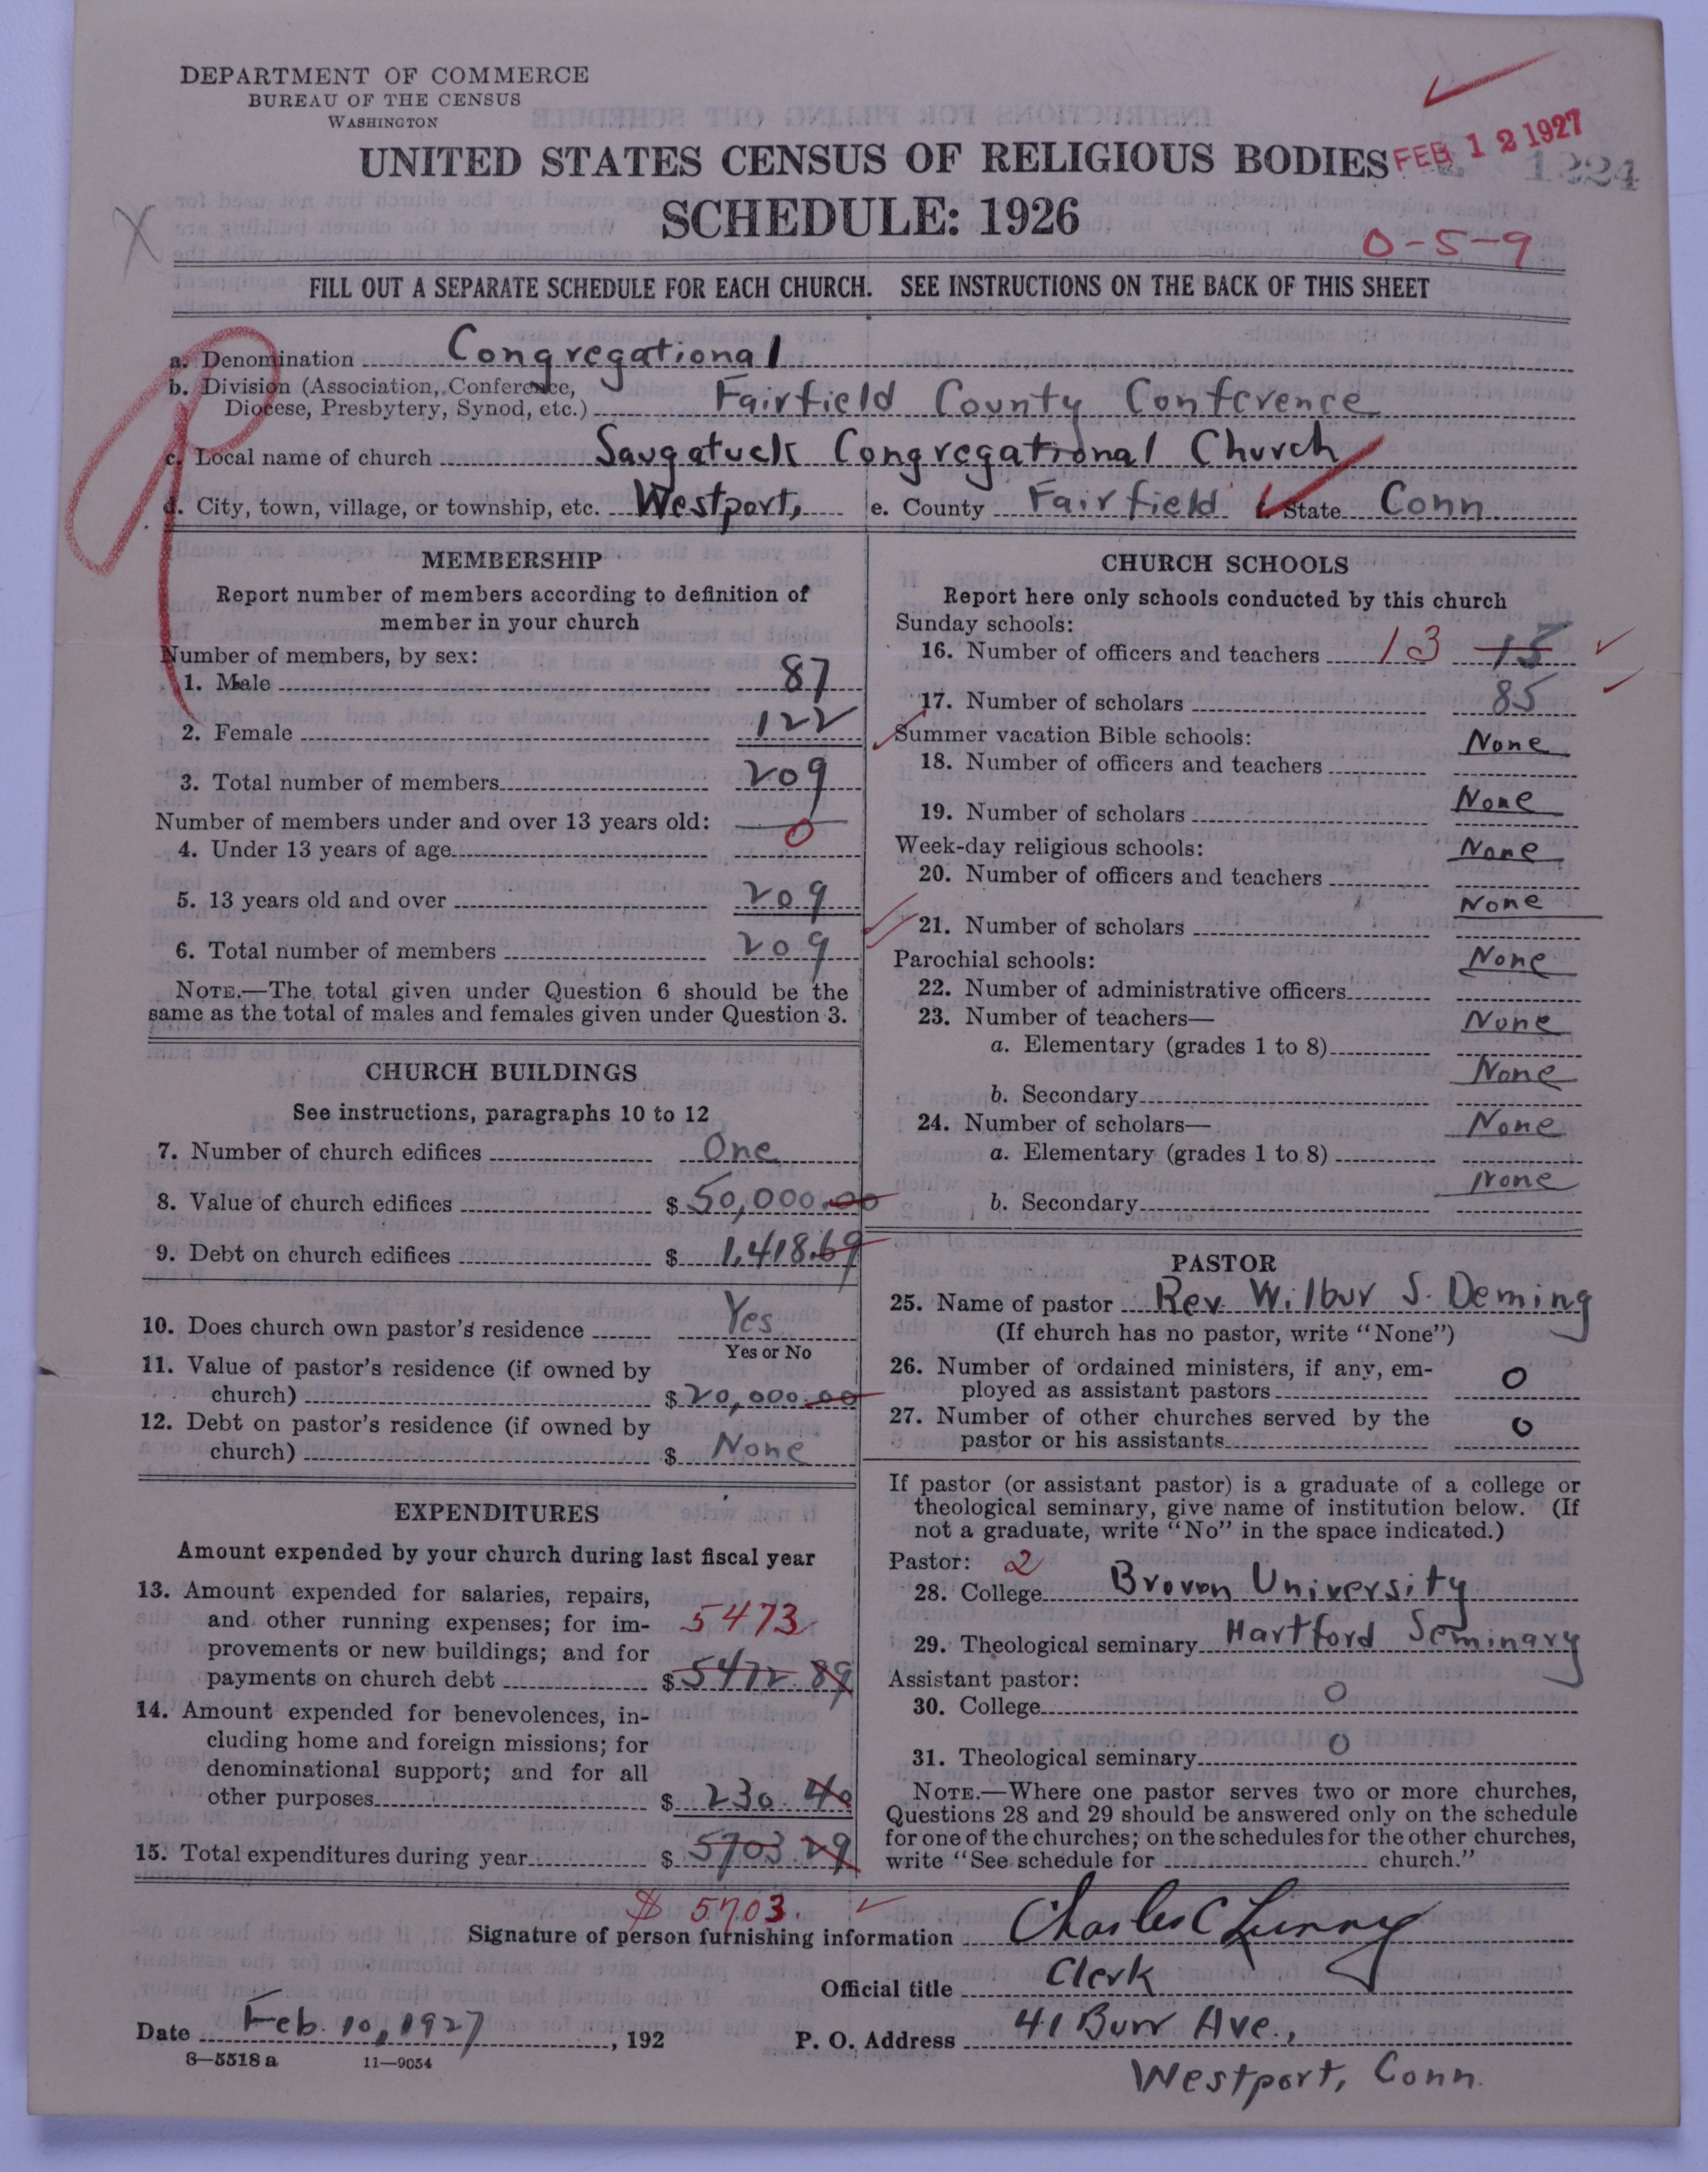 DEPARTMENT OF COMMERCE
BUREAU OF THE CENSUS
WASHINGTON
UNITED STATES CENSUS OF RELIGIOUS BODIES
FEB 12 1927
1224
SCHEDULE: 1926
0-5-9
FILL OUT A SEPARATE SCHEDULE FOR EACH CHURCH. SEE INSTRUCTIONS ON THE BACK OF THIS SHEET
a. Denomination Congregational
b. Division (Association, Conference,
Diocese, Presbytery, Synod, etc.) Fairfield County Conference
c. Local name of church Saugatuck Congregational Church
d. City, town, village, or township, etc. Westport, e. County Fairfield State Conn
MEMBERSHIP
Report number of members according to definition of
member in your church
Number of members, by sex:
1. Male 87
2. Female 122
3. Total number of members 209
Number of members under and over 13 years old:
4. Under 13 years of age 0
5. 13 years old and over 209
6. Total number of members 209
NOTE.—The total given under Question 6 should be the
same as the total of males and females given under Question 3.
CHURCH BUILDINGS
See instructions, paragraphs 10 to 12
7. Number of church edifices One
8. Value of church edifices $ 50,000.00
9. Debt on church edifices $ 1,418.69
10. Does church own pastor's residence Yes
Yes or No
11. Value of pastor's residence (if owned by
church) $ 20,000.00
12. Debt on pastor's residence (if owned by
church) $ None
EXPENDITURES
Amount expended by your church during last fiscal year
13. Amount expended for salaries, repairs,
and other running expenses; for im- 5473
provements or new buildings; and for
payments on church debt $ 5472.89
14. Amount expended for benevolences, in-
cluding home and foreign missions; for
denominational support; and for all
other purposes $ 230.40
15. Total expenditures during year $ 5703.29
$ 5703.
CHURCH SCHOOLS
Report here only schools conducted by this church
Sunday schools:
16. Number of officers and teachers 13 15
17. Number of scholars 85
Summer vacation Bible schools:
18. Number of officers and teachers None
19. Number of scholars None
Week-day religious schools:
20. Number of officers and teachers None
21. Number of scholars None
Parochial schools:
22. Number of administrative officers None
23. Number of teachers—
a. Elementary (grades 1 to 8) None
b. Secondary None
24. Number of scholars—
a. Elementary (grades 1 to 8) None
b. Secondary None
PASTOR
25. Name of pastor Rev. Wilbur S. Deming
(If church has no pastor, write "None")
26. Number of ordained ministers, if any, em-
ployed as assistant pastors 0
27. Number of other churches served by the
pastor or his assistants 0
If pastor (or assistant pastor) is a graduate of a college or
theological seminary, give name of institution below. (If
not a graduate, write "No" in the space indicated.)
Pastor: 2
28. College Brown University
29. Theological seminary Hartford Seminary
Assistant pastor:
30. College 0
31. Theological seminary 0
NOTE.—Where one pastor serves two or more churches,
Questions 28 and 29 should be answered only on the schedule
for one of the churches; on the schedules for the other churches,
write "See schedule for church."
Signature of person furnishing information Charles C Lunny
Official title Clerk
Date Feb. 10, 1927, 192 P. O. Address 41 Burr Ave.,
8—5518 a 11—9054
Westport, Conn.